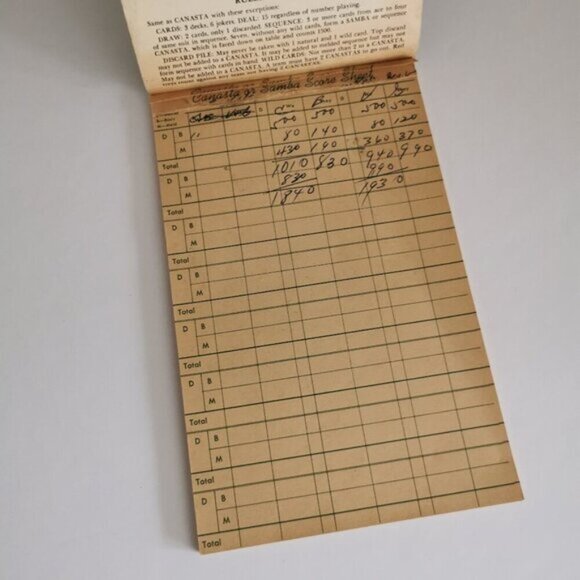 Same as CANASTA with these exceptions:
CARDS: 5 decks, 6 jokers. DEAL: 15 regardless of number playing.
DRAW: 2 cards, only 1 discarded. SEQUENCE: 5 or more cards from ace to four
of same suit in sequence. Seven, without any wild cards, form a SAMBA or sequence
CANASTA, which is faced down on table and counts 1500.
DISCARD PILE: May never be taken with 1 natural and 1 wild card. Top discard
may not be added to a CANASTA. It may be added to melded sequence but may not
form sequence with cards in hand. WILD CARDS: Not more than 2 to a CANASTA.
May not be added to a CANASTA. A team must have 2 CANASTAS to go out. Red
Canasta or Samba Score Sheet
500 500 500 500
D B 80 140 80 120
M 430 190 360 370
Total 1010 830 940 990
D B 830 990
M 1840 1930
Total
D B
M
Total
D B
M
Total
D B
M
Total
D B
M
Total
D B
M
Total
D B
M
Total